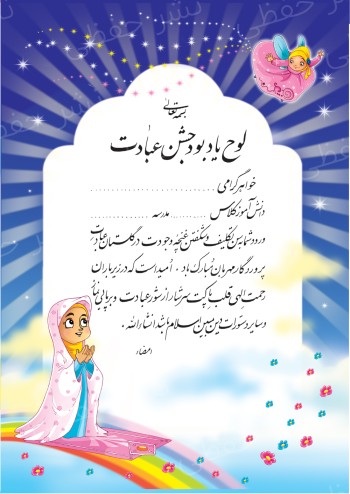 بسمه تعالی
لوح یادبود جشن عبادت
خواهر گرامی ............................
دانش آموز کلاس .......... مدرسه ..............
ورود شما به سن تکلیف و شکفتن غنچه وجودت در گلستان عبادت
پروردگار مهربان مبارک باد . امید است که در زیر باران
رحمت الهی قلب پاکت سرشار از نور عبادت و برپایی نماز
و سایر دستورات دین مبین اسلام باشد انشاءالله .
امضاء